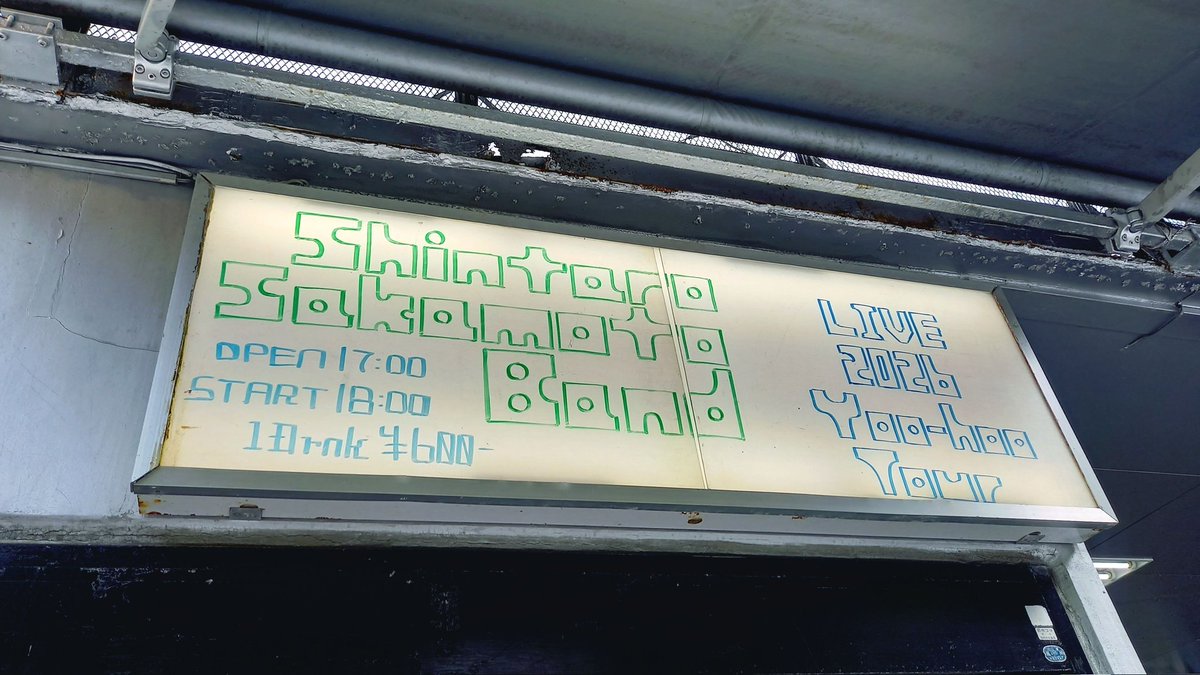 Shintaro
Sakamoto
Band
OPEN 17:00
START 18:00
1Drnk ¥600-
LIVE
2026
Yoo-hoo
Tour